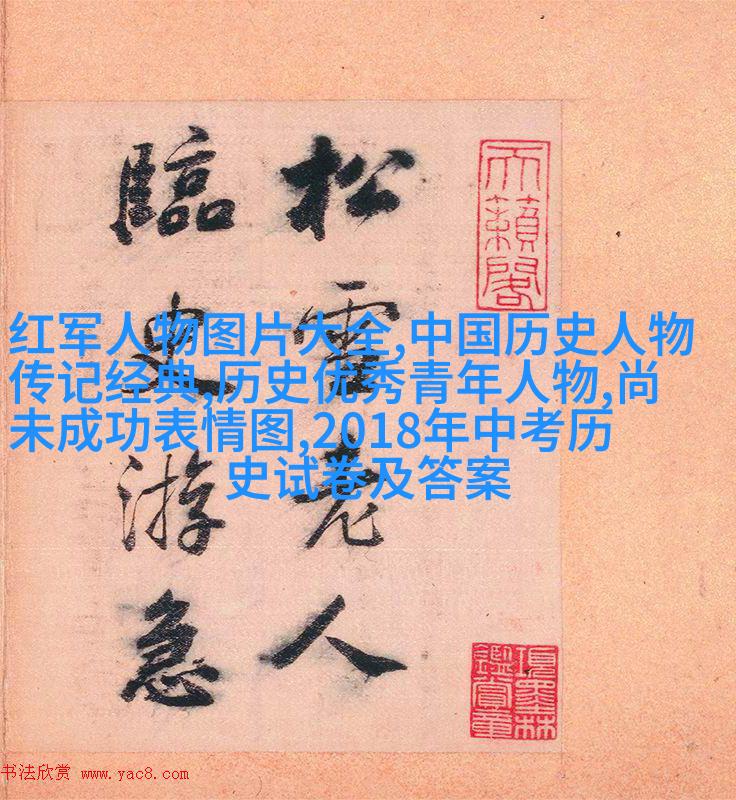 天籟閣
松雪老人
臨史游急
項墨林
鑑賞章
红军人物图片大全,中国历史人物
传记经典,历史优秀青年人物,尚
未成功表情图,2018年中考历
史试卷及答案
书法欣赏 www.yac8.com